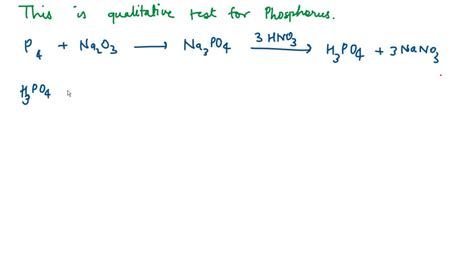 This is qualitative test for Phosphorus.
P₄ + Na₂O₃ ⟶ Na₃PO₄ —3 HNO₃→ H₃PO₄ + 3NaNO₃
H₃PO₄